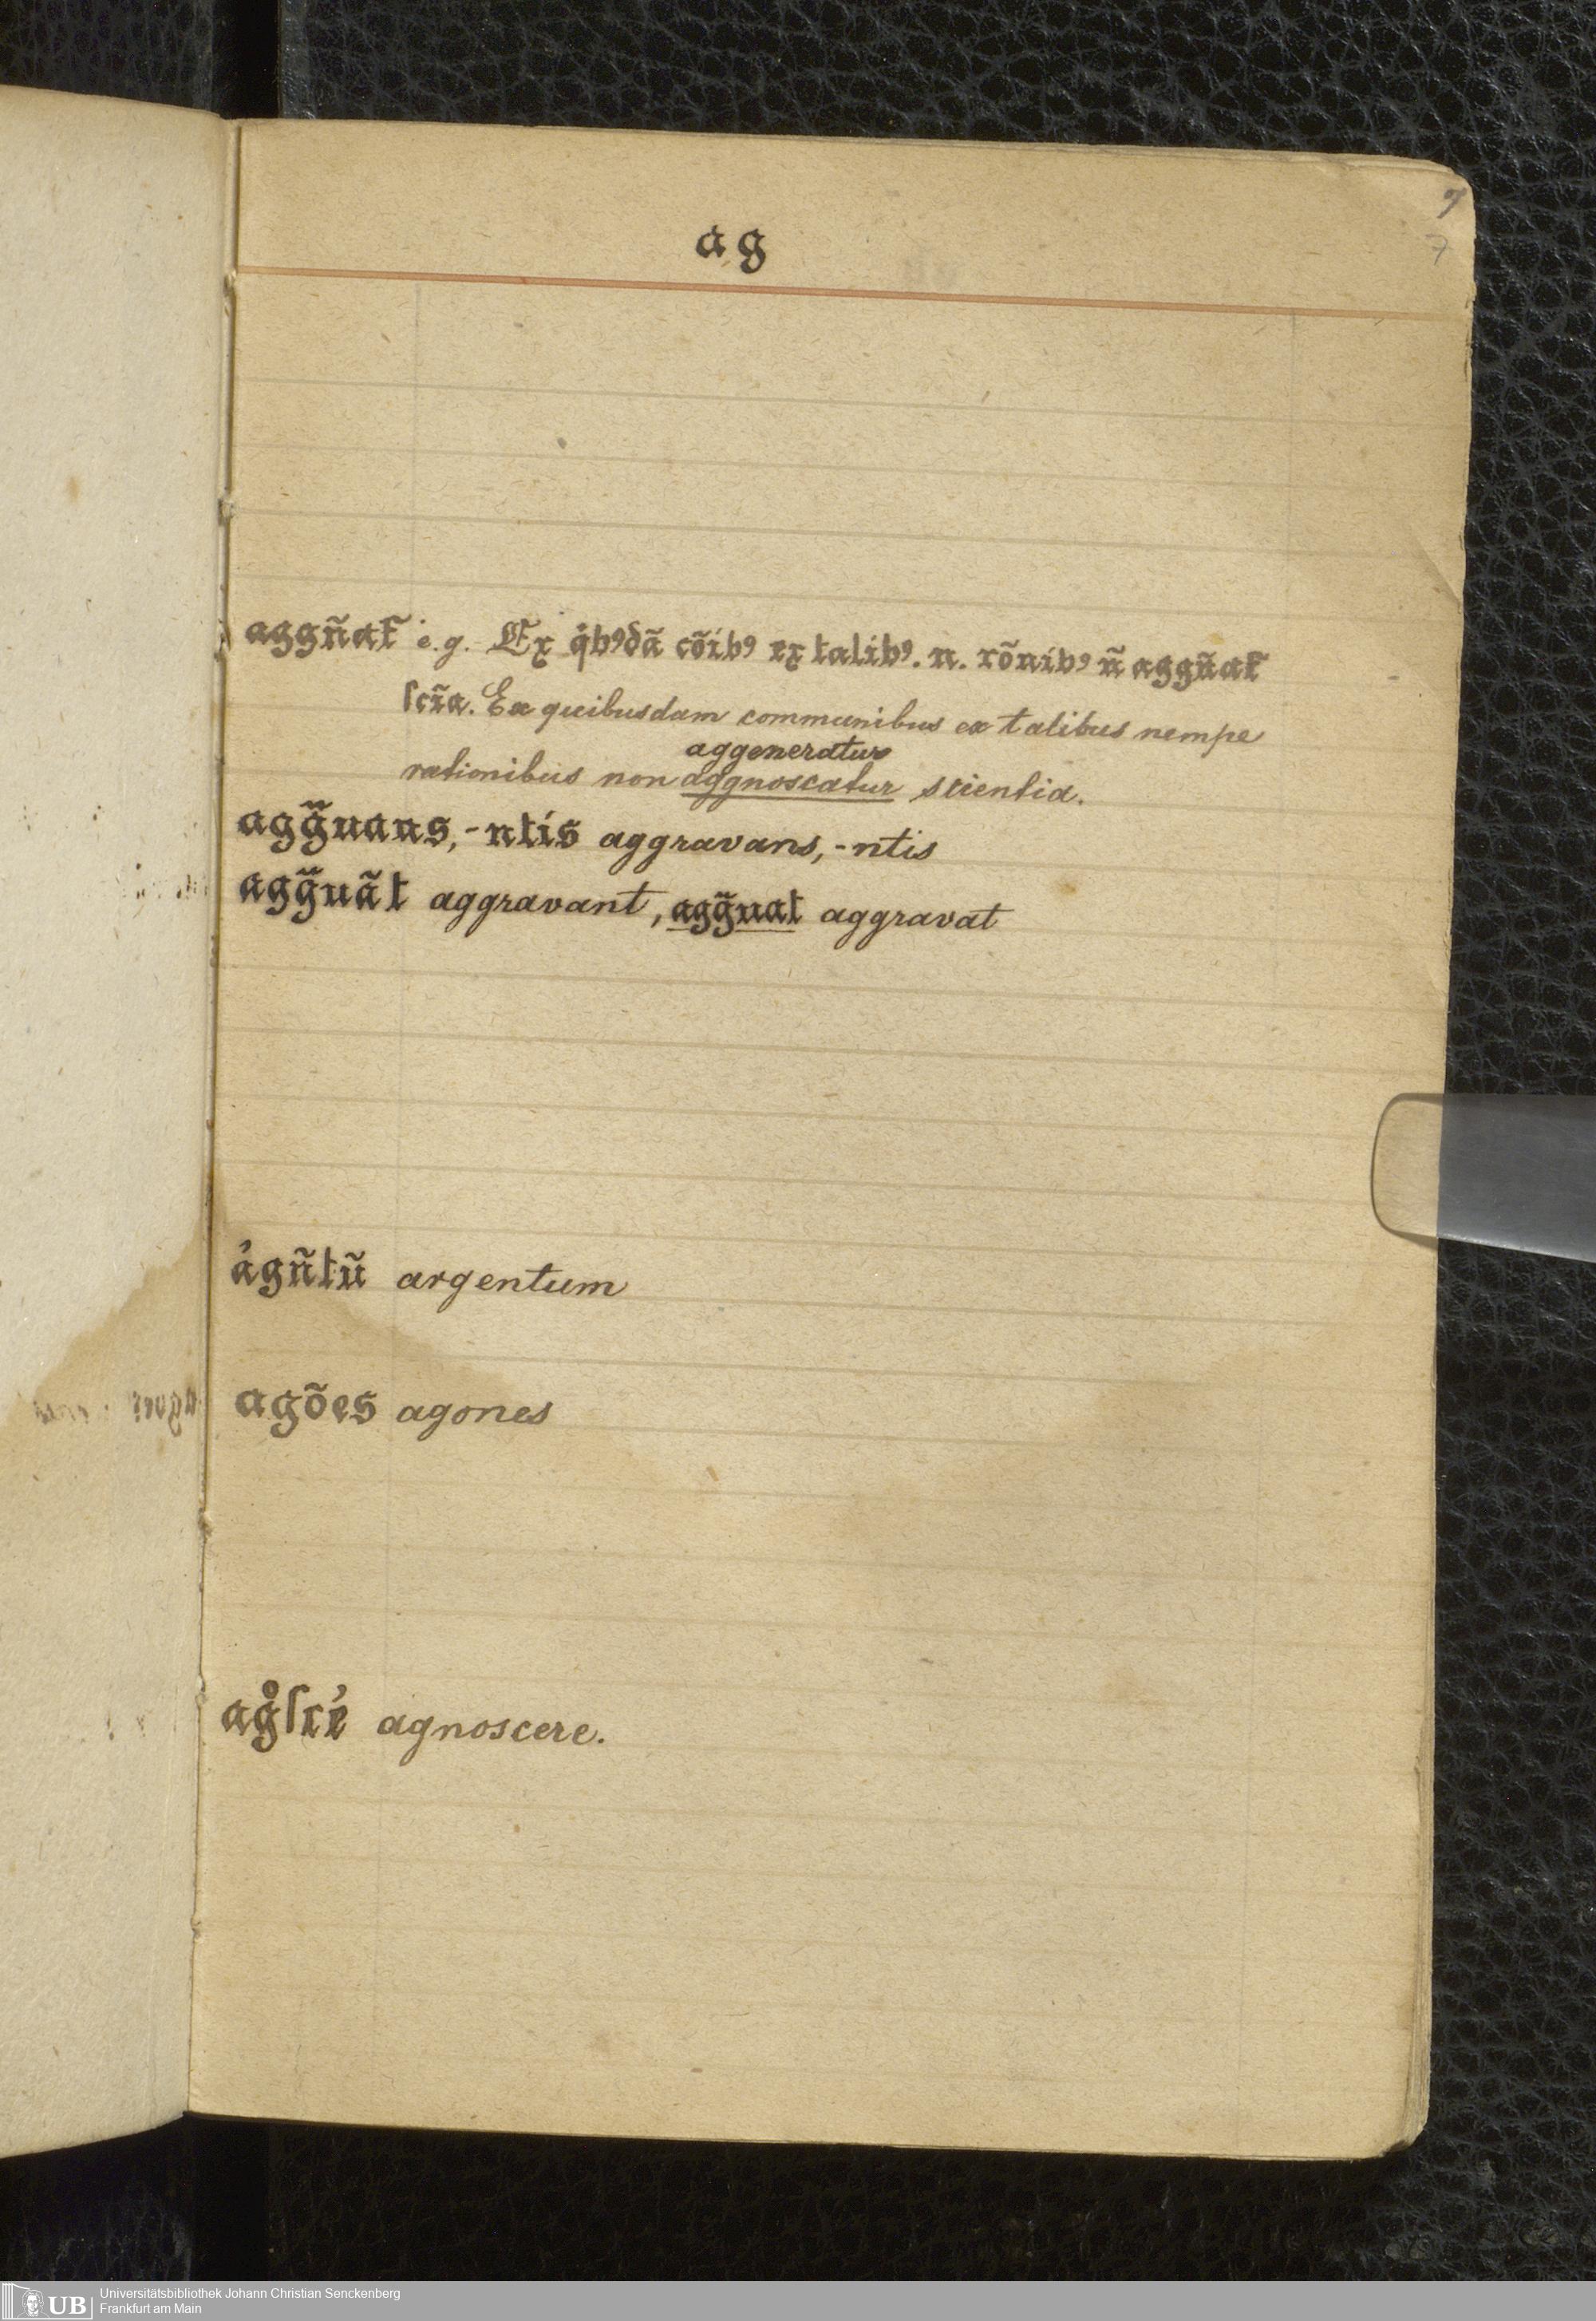 7
ag
7
aggñat̃ e.g. Ex q̊bꝰdã cõibꝰ ex talibꝰ. n. rõnibꝰ ñ aggñat̃
ſcĩa. Ex quibusdam communibus ex talibus nempe
aggeneratur
rationibus non aggnoscatur scientia.
agg̃uans, -ntis aggravans, -ntis
agg̃uãt aggravant, agg̃uat aggravat
a᾽gñtũ argentum
agões agones
ag̊ſce᾽ agnoscere.
UB Universitätsbibliothek Johann Christian Senckenberg
Frankfurt am Main